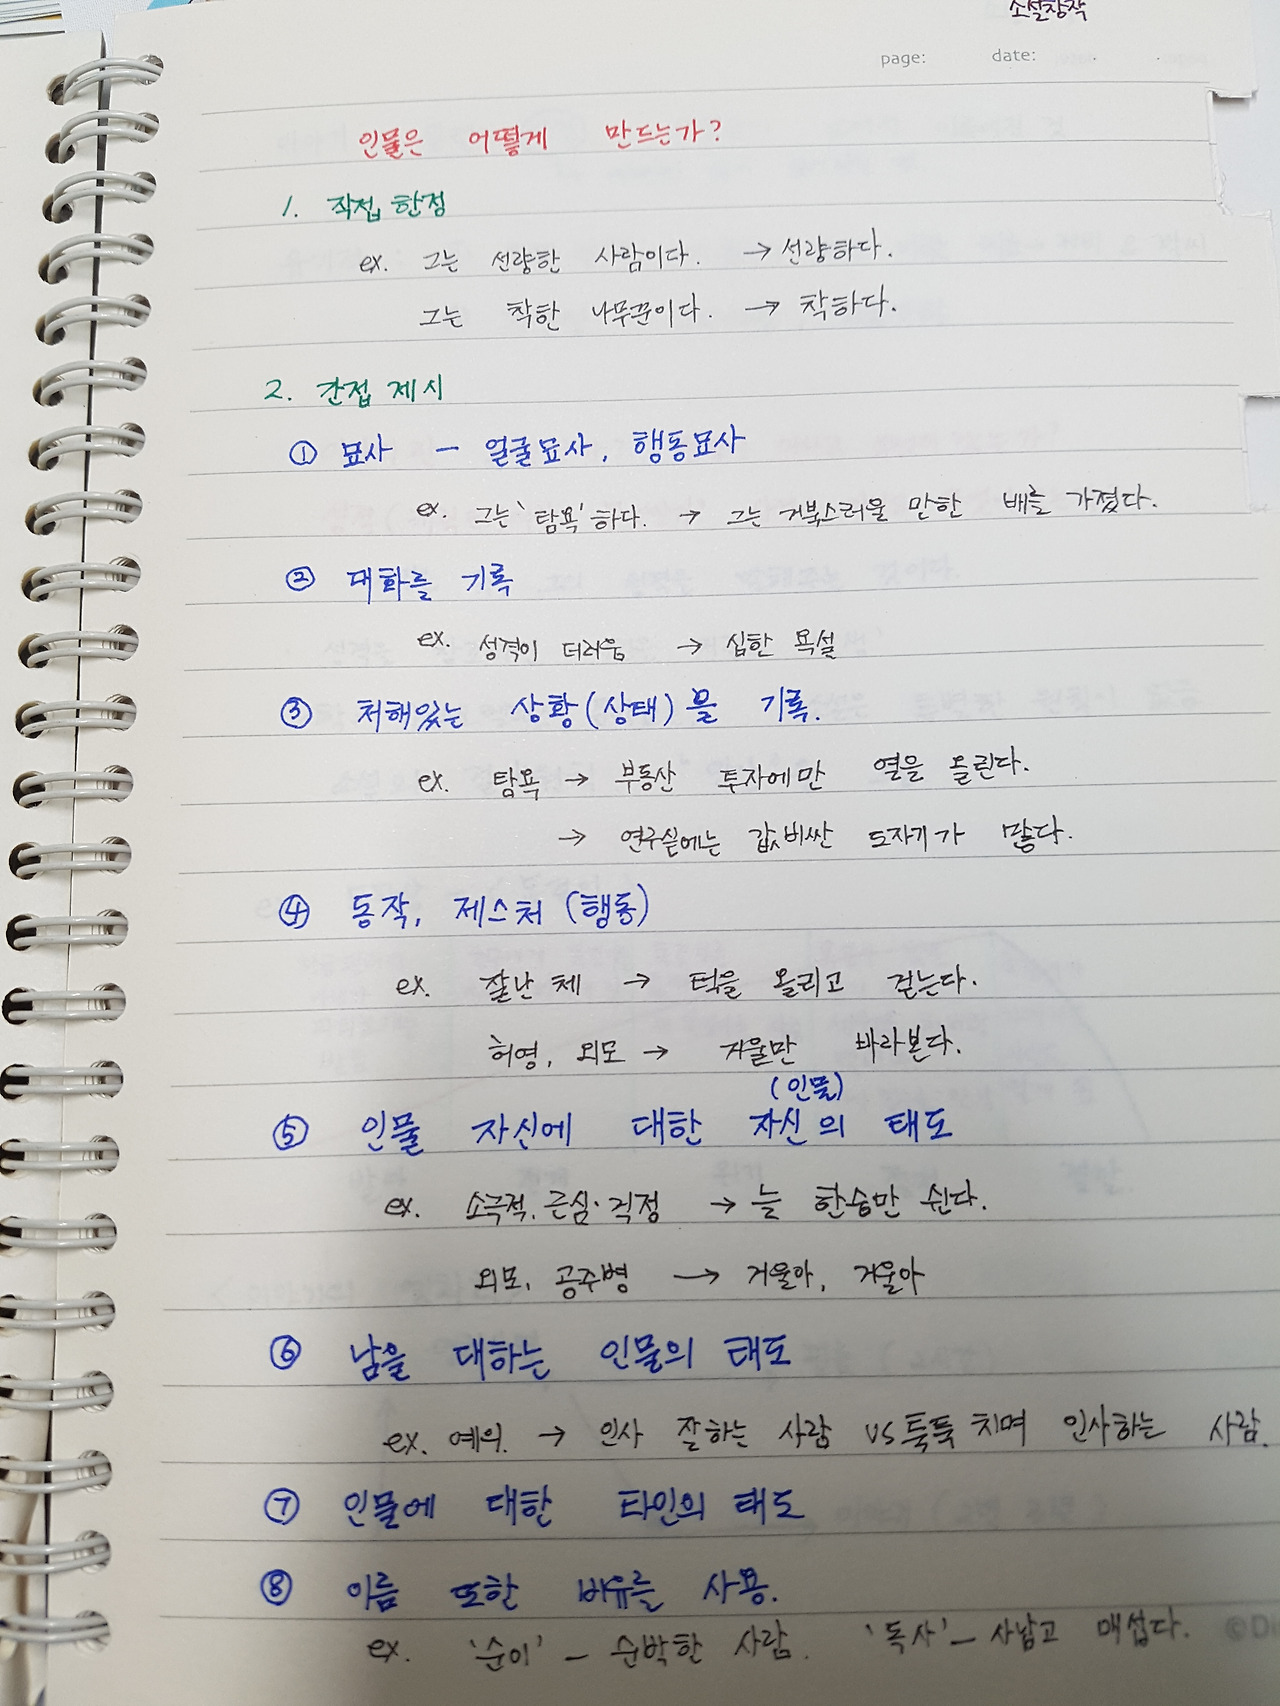 소설창작
page: date:
인물은 어떻게 만드는가?
1. 직접 한정
ex. 그는 선량한 사람이다. → 선량하다.
그는 착한 나무꾼이다. → 착하다.
2. 간접 제시
① 묘사 - 얼굴묘사, 행동묘사
ex. 그는 '탐욕'하다. → 그는 거북스러울 만한 배를 가졌다.
② 대화를 기록
ex. 성격이 더러움 → 심한 욕설
③ 처해있는 상황(상태)를 기록.
ex. 탐욕 → 부동산 투자에만 열을 올린다.
→ 연구실에는 값비싼 도자기가 많다.
④ 동작, 제스처 (행동)
ex. 잘난 체 → 턱을 올리고 걷는다.
허영, 외모 → 거울만 바라본다.
(인물)
⑤ 인물 자신에 대한 자신의 태도
ex. 소극적, 근심·걱정 → 늘 한숨만 쉰다.
외모, 공주병 → 거울아, 거울아
⑥ 남을 대하는 인물의 태도
ex. 예의 → 인사 잘하는 사람 VS 툭툭 치며 인사하는 사람.
⑦ 인물에 대한 타인의 태도
⑧ 이름 또한 비유를 사용.
ex. '순이' - 순박한 사람. '독사' - 사납고 매섭다.